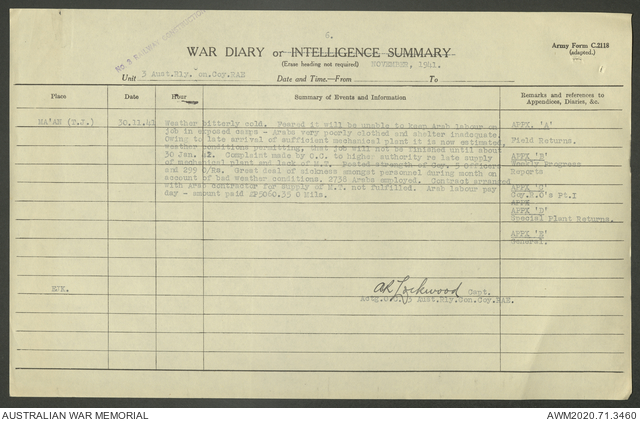 6.
NO 3 RAILWAY CONSTRUCTION
WAR DIARY or INTELLIGENCE SUMMARY
Army Form C.2118
(adapted.)
(Erase heading not required) NOVEMBER, 1941.
Unit 3 Aust.Rly. Con.Coy.RAE Date and Time.—From To
Place Date Hour Summary of Events and Information Remarks and references to Appendices, Diaries, &c.
MA'AN (T.J.) 30.11.41 Weather bitterly cold. Feared it will be unable to keep Arab labour on
job in exposed camps - Arabs very poorly clothed and shelter inadequate.
Owing to late arrival of sufficient mechanical plant it is now estimated,
weather conditions permitting, that job will not be finished until about
30 Jan. 42. Complaint made by O.C. to higher authority re late supply
of mechanical plant and lack of M.T. Posted strength of Coy. 5 Officers
and 299 O/Rs. Great deal of sickness amongst personnel during month on
account of bad weather conditions. 2738 Arabs employed. Contract arranged
with Arab contractor for supply of M.T. not fulfilled. Arab labour pay
day - amount paid £P5060.35 0 Mils.
APPX. 'A'
Field Returns.
APPX 'B'
Weekly Progress
Reports
APPX 'C'
Coy.R.O's Pt.I
APPX
APPX 'D'
Special Plant Returns.
APPX 'E'
General.
EJK.
Lockwood Capt.
Actg.O.C. 3 Aust.Rly.Con.Coy.RAE.
AUSTRALIAN WAR MEMORIAL
AWM2020.71.3460